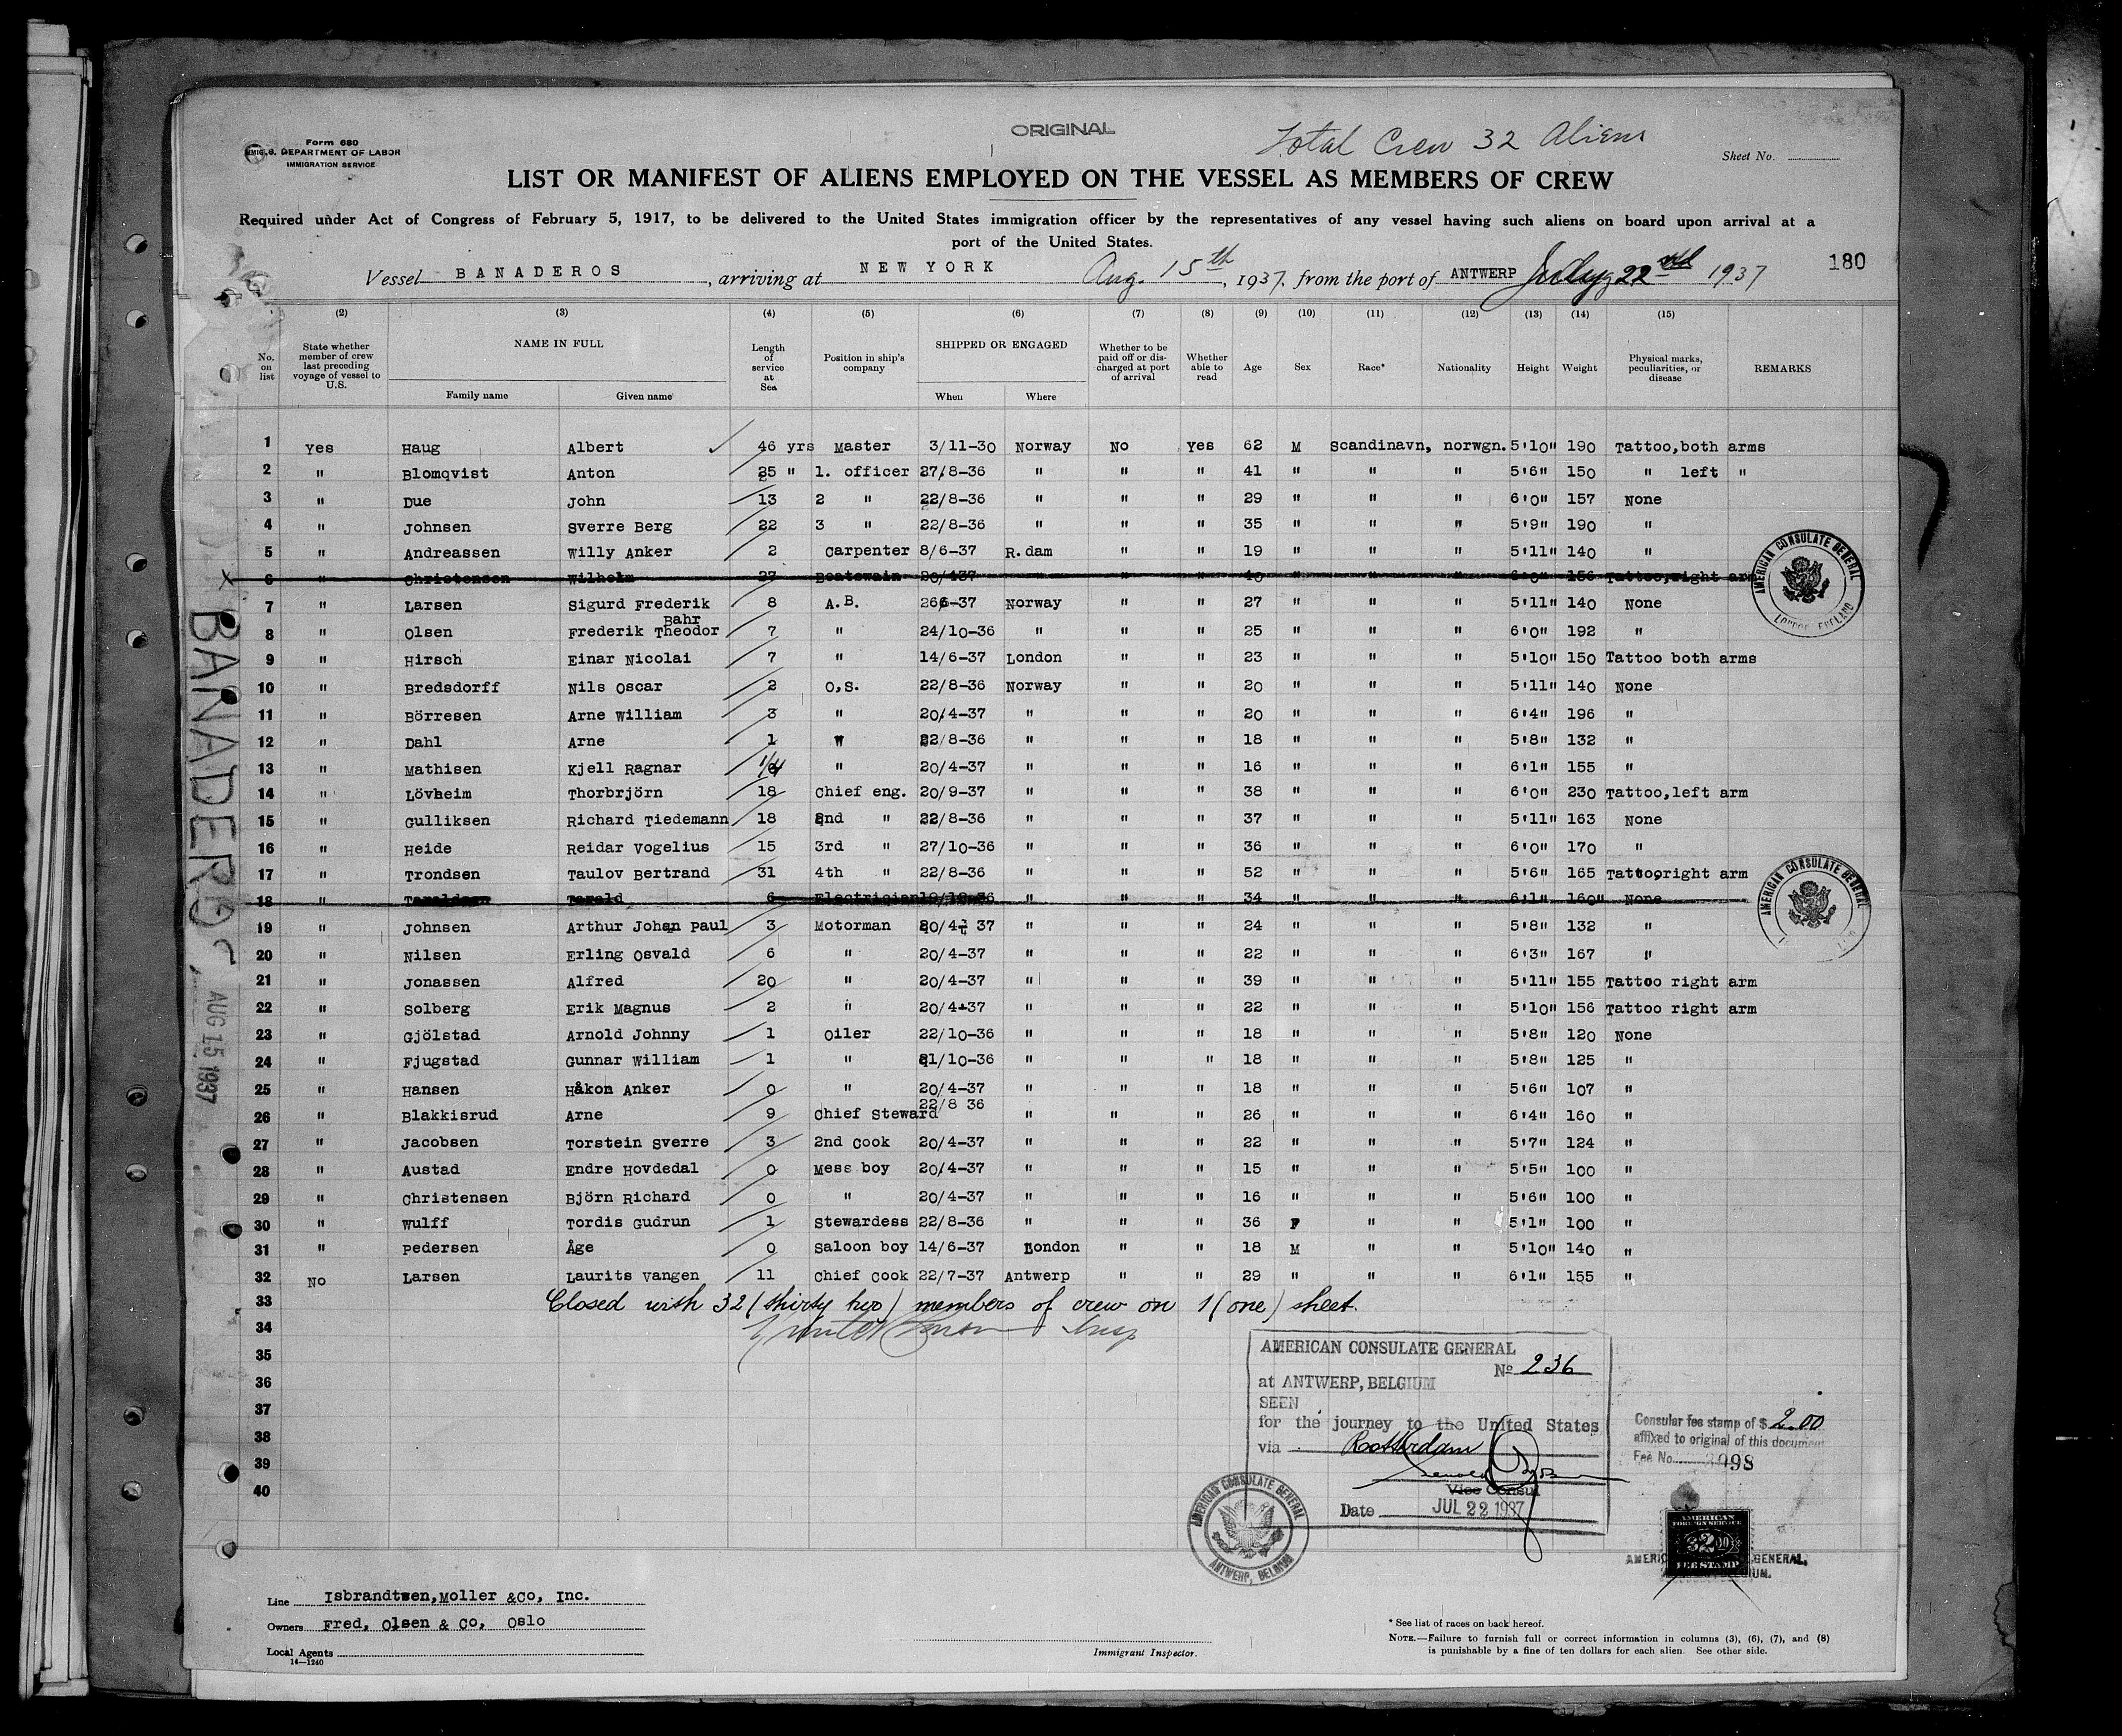 ORIGINAL
Total Crew 32 Aliens
Form 680
U.S. DEPARTMENT OF LABOR
IMMIGRATION SERVICE
Sheet No.
LIST OR MANIFEST OF ALIENS EMPLOYED ON THE VESSEL AS MEMBERS OF CREW
Required under Act of Congress of February 5, 1917, to be delivered to the United States immigration officer by the representatives of any vessel having such aliens on board upon arrival at a
port of the United States.
Vessel BANADEROS, arriving at NEW YORK Aug. 15th, 1937, from the port of ANTWERP July 22nd 1937
180
(2) (3) (4) (5) (6) (7) (8) (9) (10) (11) (12) (13) (14) (15)
No. on list
State whether member of crew last preceding voyage of vessel to U.S.
NAME IN FULL
Family name Given name
Length of service at Sea
Position in ship's company
SHIPPED OR ENGAGED
When Where
Whether to be paid off or discharged at port of arrival
Whether able to read
Age Sex Race* Nationality Height Weight
Physical marks, peculiarities, or disease
REMARKS
1 Yes Haug Albert 46 yrs Master 3/11-30 Norway No Yes 62 M Scandinavn, norwgn. 5'10" 190 Tattoo,both arms
2 " Blomqvist Anton 25 " 1. officer 27/8-36 " " " 41 " " " 5'6" 150 " left "
3 " Due John 13 2 " 22/8-36 " " " 29 " " " 6'0" 157 None
4 " Johnsen Sverre Berg 22 3 " 22/8-36 " " " 35 " " " 5'9" 190 "
5 " Andreassen Willy Anker 2 Carpenter 8/6-37 R.dam " " 19 " " " 5'11" 140 "
6 " Christensen Wilhelm 27 Boatswain 20/437 " " " 40 " " " 6'0" 156 Tattoo,right arm
7 " Larsen Sigurd Frederik 8 A.B. 266-37 Norway " " 27 " " " 5'11" 140 None
8 " Olsen Frederik Theodor Bahr 7 " 24/10-36 " " " 25 " " " 6'0" 192 "
9 " Hirsch Einar Nicolai 7 " 14/6-37 London " " 23 " " " 5'10" 150 Tattoo both arms
10 " Bredsdorff Nils Oscar 2 O,S. 22/8-36 Norway " " 20 " " " 5'11" 140 None
11 " Börresen Arne William 3 " 20/4-37 " " " 20 " " " 6'4" 196 "
12 " Dahl Arne 1 " 22/8-36 " " " 18 " " " 5'8" 132 "
13 " Mathisen Kjell Ragnar 1/4 " 20/4-37 " " " 16 " " " 6'1" 155 "
14 " Lövheim Thorbrjörn 18 Chief eng. 20/9-37 " " " 38 " " " 6'0" 230 Tattoo,left arm
15 " Gulliksen Richard Tiedemann 18 2nd " 22/8-36 " " " 37 " " " 5'11" 163 None
16 " Heide Reidar Vogelius 15 3rd " 27/10-36 " " " 36 " " " 6'0" 170 "
17 " Trondsen Taulov Bertrand 31 4th " 22/8-36 " " " 52 " " " 5'6" 165 Tattoo,right arm
18 " Taraldsen Tarald 6 Electrician " " " 34 " " " 6'1" 160" None
19 " Johnsen Arthur Johan Paul 3 Motorman 20/4- 37 " " " 24 " " " 5'8" 132 "
20 " Nilsen Erling Osvald 6 " 20/4-37 " " " 22 " " " 6'3" 167 "
21 " Jonassen Alfred 20 " 20/4-37 " " " 39 " " " 5'11" 155 Tattoo right arm
22 " Solberg Erik Magnus 2 " 20/4-37 " " " 22 " " " 5'10" 156 Tattoo right arm
23 " Gjölstad Arnold Johnny 1 Oiler 22/10-36 " " " 18 " " " 5'8" 120 None
24 " Fjugstad Gunnar William 1 " 21/10-36 " " " 18 " " " 5'8" 125 "
25 " Hansen Håkon Anker 0 " 20/4-37 " " " 18 " " " 5'6" 107 "
26 " Blakkisrud Arne 9 Chief Steward 22/8 36 " " " 26 " " " 6'4" 160 "
27 " Jacobsen Torstein Sverre 3 2nd Cook 20/4-37 " " " 22 " " " 5'7" 124 "
28 " Austad Endre Hovdedal 0 Mess boy 20/4-37 " " " 15 " " " 5'5" 100 "
29 " Christensen Björn Richard 0 " 20/4-37 " " " 16 " " " 5'6" 100 "
30 " Wulff Tordis Gudrun 1 Stewardess 22/8-36 " " " 36 F " " 5'1" 100 "
31 " Pedersen Åge 0 Saloon boy 14/6-37 London " " 18 M " " 5'10" 140 "
32 No Larsen Laurits Vangen 11 Chief Cook 22/7-37 Antwerp " " 29 " " " 6'1" 155 "
33 Closed with 32 (thirty two) members of crew on 1 (one) sheet.
34
35
36
37
38
39
40
BANADEROS
AUG 15 1937
AMERICAN CONSULATE GENERAL
AMERICAN CONSULATE GENERAL
AMERICAN CONSULATE GENERAL
No 236
at ANTWERP, BELGIUM
SEEN
for the journey to the United States
via Rotterdam
Vice Consul
Date JUL 22 1937
AMERICAN CONSULATE GENERAL
ANTWERP, BELGIUM
Consular fee stamp of $ 2.00
affixed to original of this document
Fee No. 998
AMERICAN
FOREIGN SERVICE
FEE STAMP
Line Isbrandtsen,Moller &Co, Inc.
Owners Fred, Olsen & Co, Oslo
Local Agents
14—1240
Immigrant Inspector.
* See list of races on back hereof.
NOTE.—Failure to furnish full or correct information in columns (3), (6), (7), and (8)
is punishable by a fine of ten dollars for each alien. See other side.